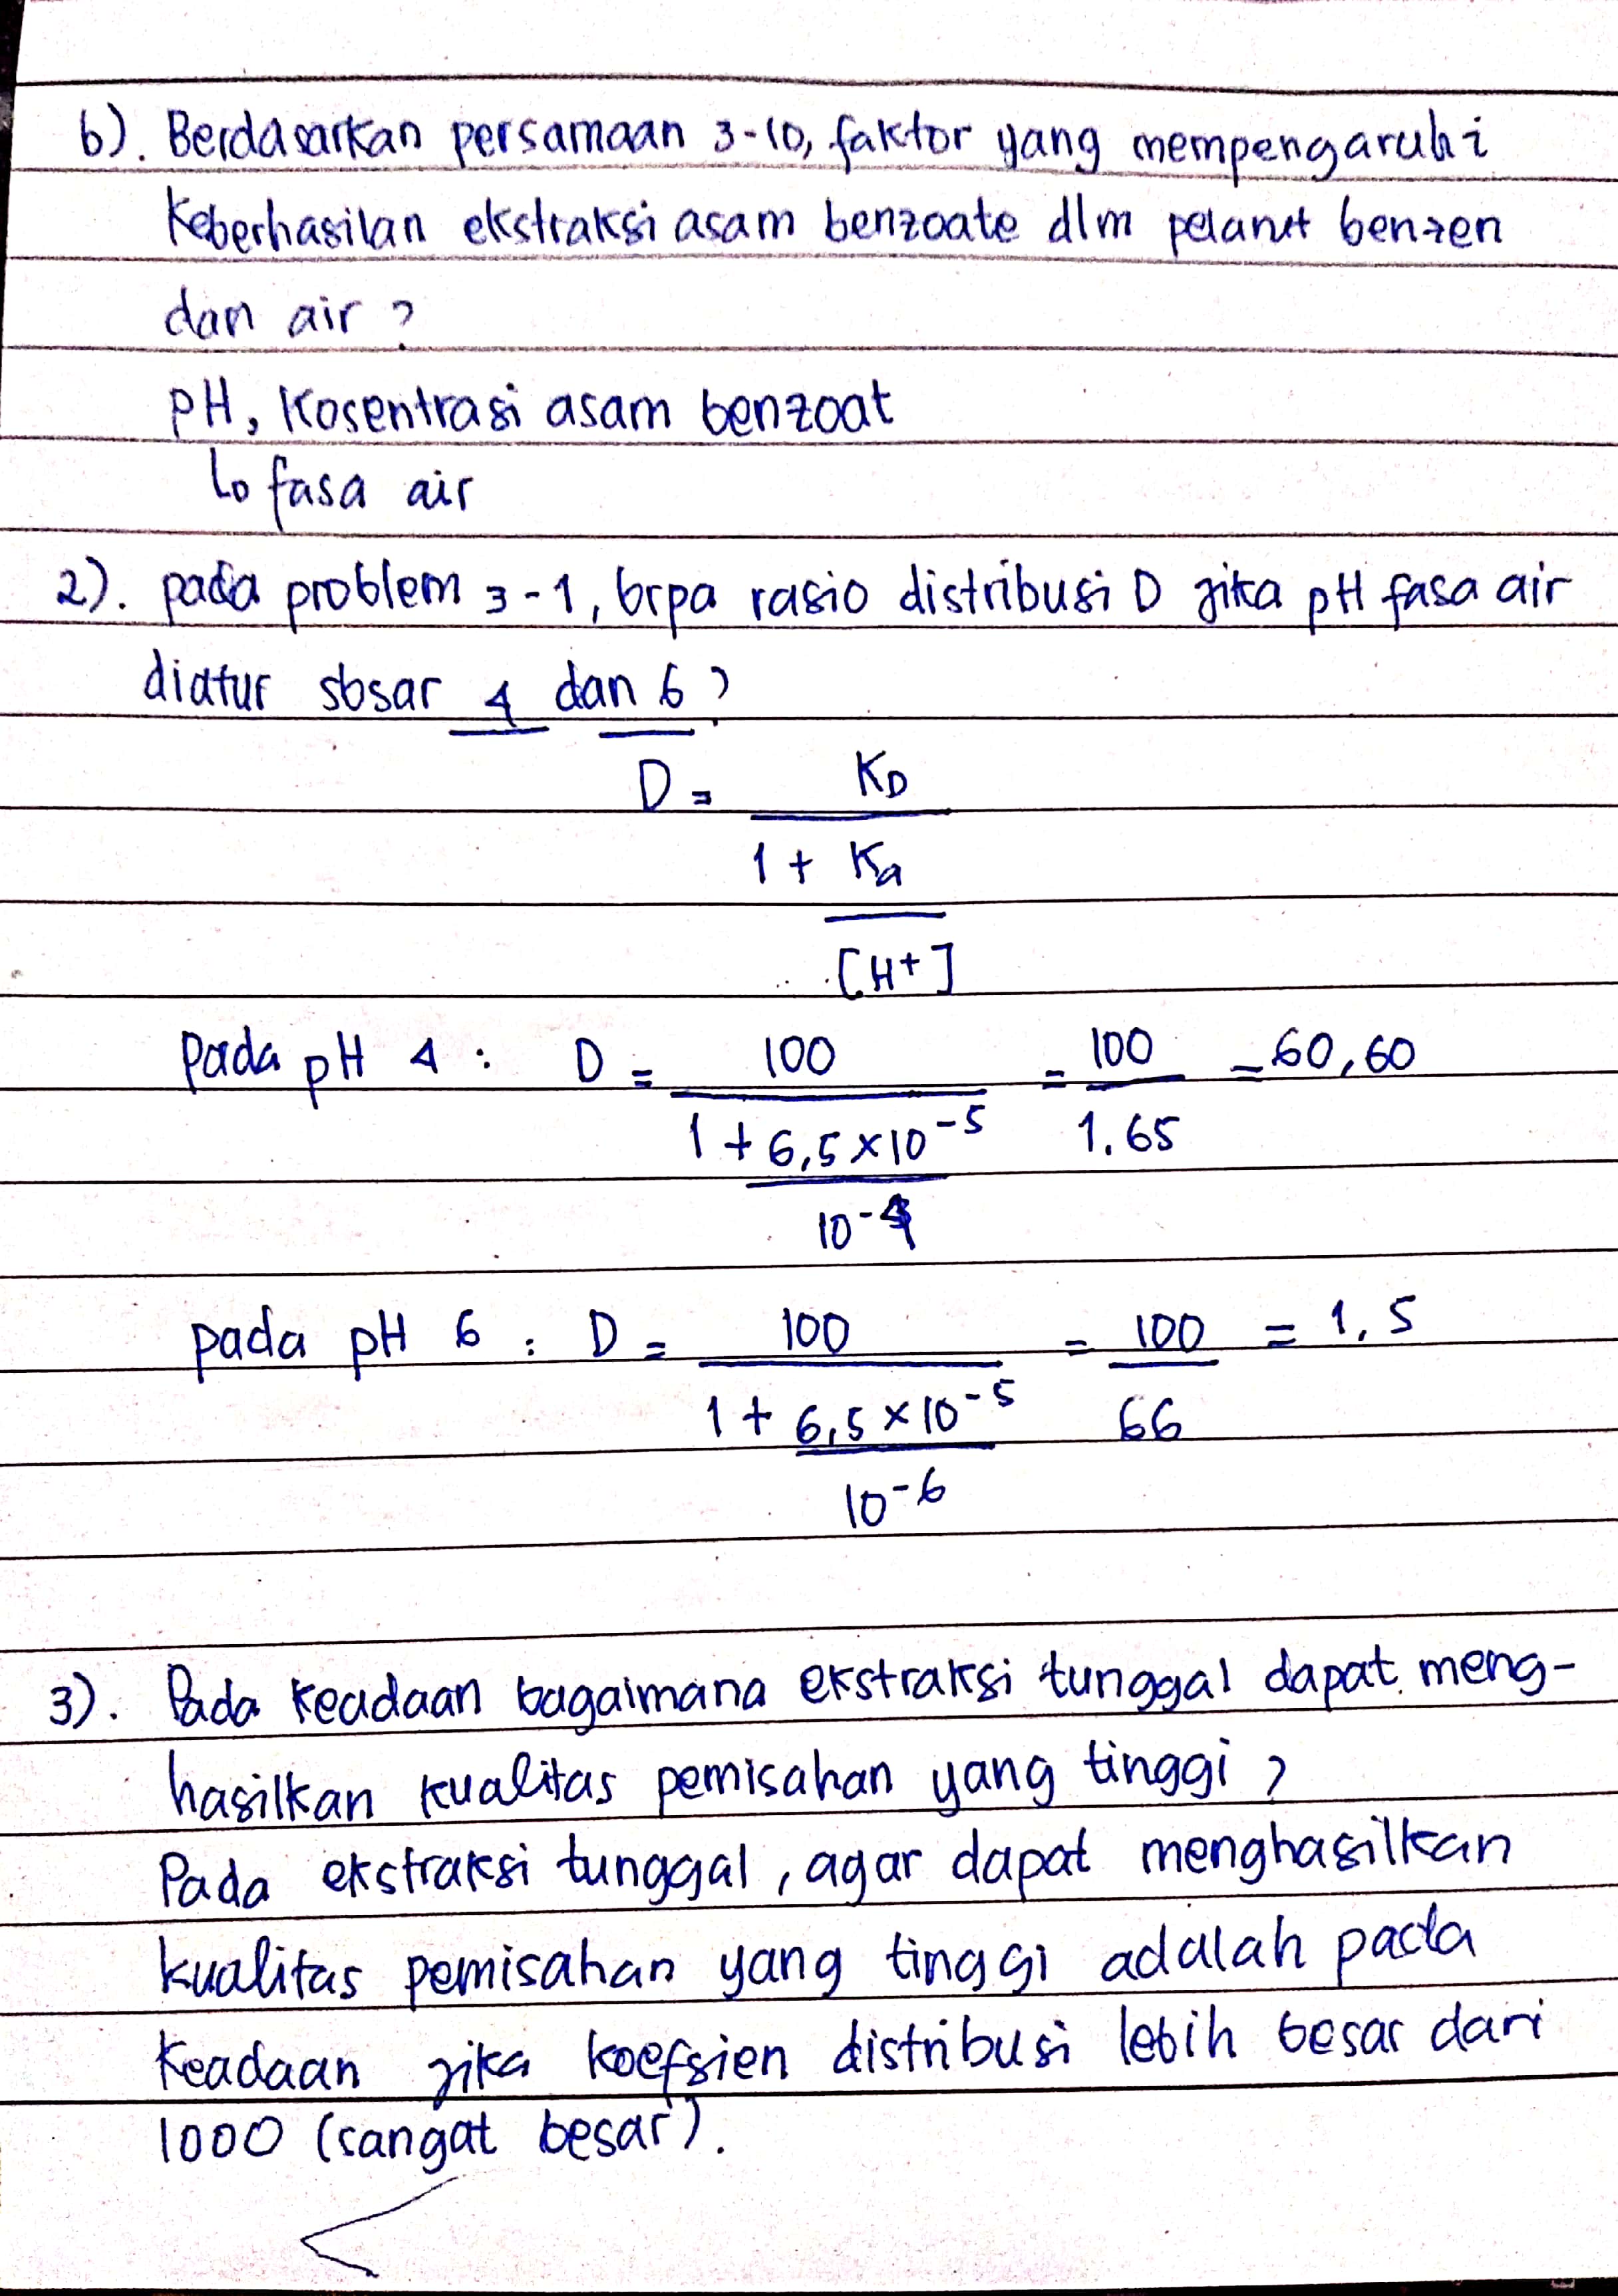 b). Berdasarkan persamaan 3-10, faktor yang mempengaruhi
Keberhasilan ekstraksi asam benzoate dlm pelarut benzen
dan air ?
pH, Kosentrasi asam benzoat
↳ fasa air
2). pada problem 3-1, brpa rasio distribusi D jika pH fasa air
diatur sbsar 4 dan 6 ?
D = KD / (1 + Ka / [H+])
Pada pH 4 : D = 100 / (1 + 6,5 × 10^-5 / 10^-4) = 100 / 1.65 = 60,60
pada pH 6 : D = 100 / (1 + 6,5 × 10^-5 / 10^-6) = 100 / 66 = 1,5
3). Pada keadaan bagaimana ekstraksi tunggal dapat meng-
hasilkan kualitas pemisahan yang tinggi ?
Pada ekstraksi tunggal, agar dapat menghasilkan
kualitas pemisahan yang tinggi adalah pada
keadaan jika koefsien distribusi lebih besar dari
1000 (sangat besar).